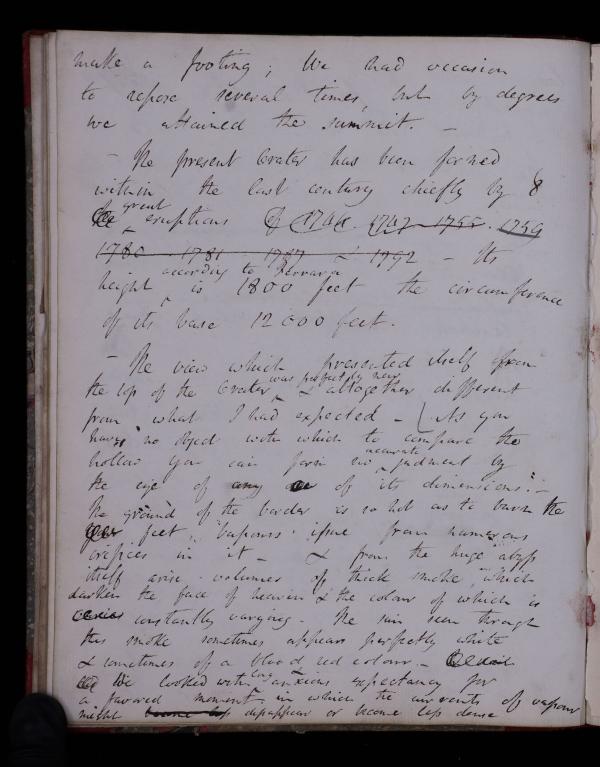 make a footing; We had occasion
to repose several times, but by degrees
we attained the summit. —
— The present Crater has been formed
within the last century chiefly by 8
great
eruptions of 1744. 1747 1755. 1759
1780 1781 1787 & 1792 — Its
according to Ferrara
height is 1800 feet the circumference
of its base 12000 feet.
— The view which presented itself from
was perfectly new
the top of the Crater & altogether different
from what I had expected — (As you
have no object with which to compare the
accurate
hollow you can form no judgment by
the eye of any one of its dimensions. —
The ground of the border is so hot as to burn the
feet, vapours issue from numerous
orefices in it — & from the huge abyss
itself arise volumes of thick smoke, which
darken the face of heaven & the colour of which is
constantly varying. — The sun seen through
this smoke sometimes appears perfectly white
& sometimes of a blood red colour. —
We looked with anxious expectancy for
a favored moment in which the currents of vapour
might disappear or become less dense